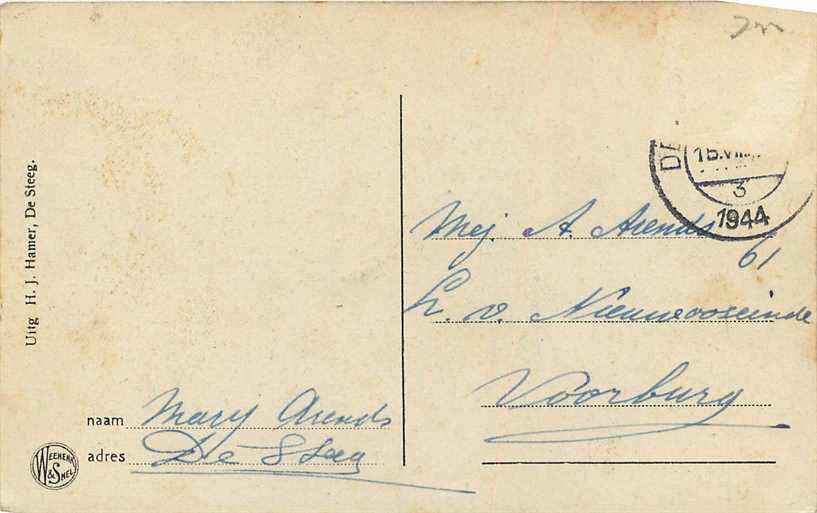 1944
3
Mej. A. Arends
61
L. v. Nieuwoordeinde
Voorburg
naam Mary Arends
adres De Steeg
Uitg H. J. Hamer, De Steeg.
WEENENK & SNEL